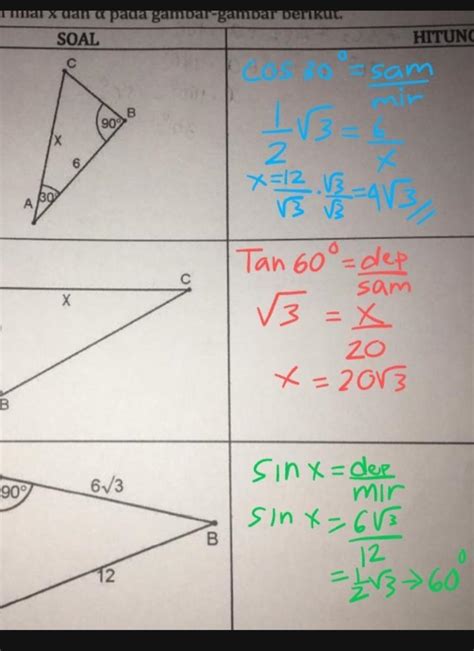 nilai x dan α pada gambar-gambar berikut.
SOAL
HITUNG
C
B
90°
x
6
A 30°
cos 30° = sam/mir
1/2 √3 = 6/x
x = 12/√3 . √3/√3 = 4√3 //
C
x
B
Tan 60° = dep/sam
√3 = x/20
x = 20√3
90°
6√3
B
12
sin x = dep/mir
sin x = 6√3/12
= 1/2 √3 → 60°